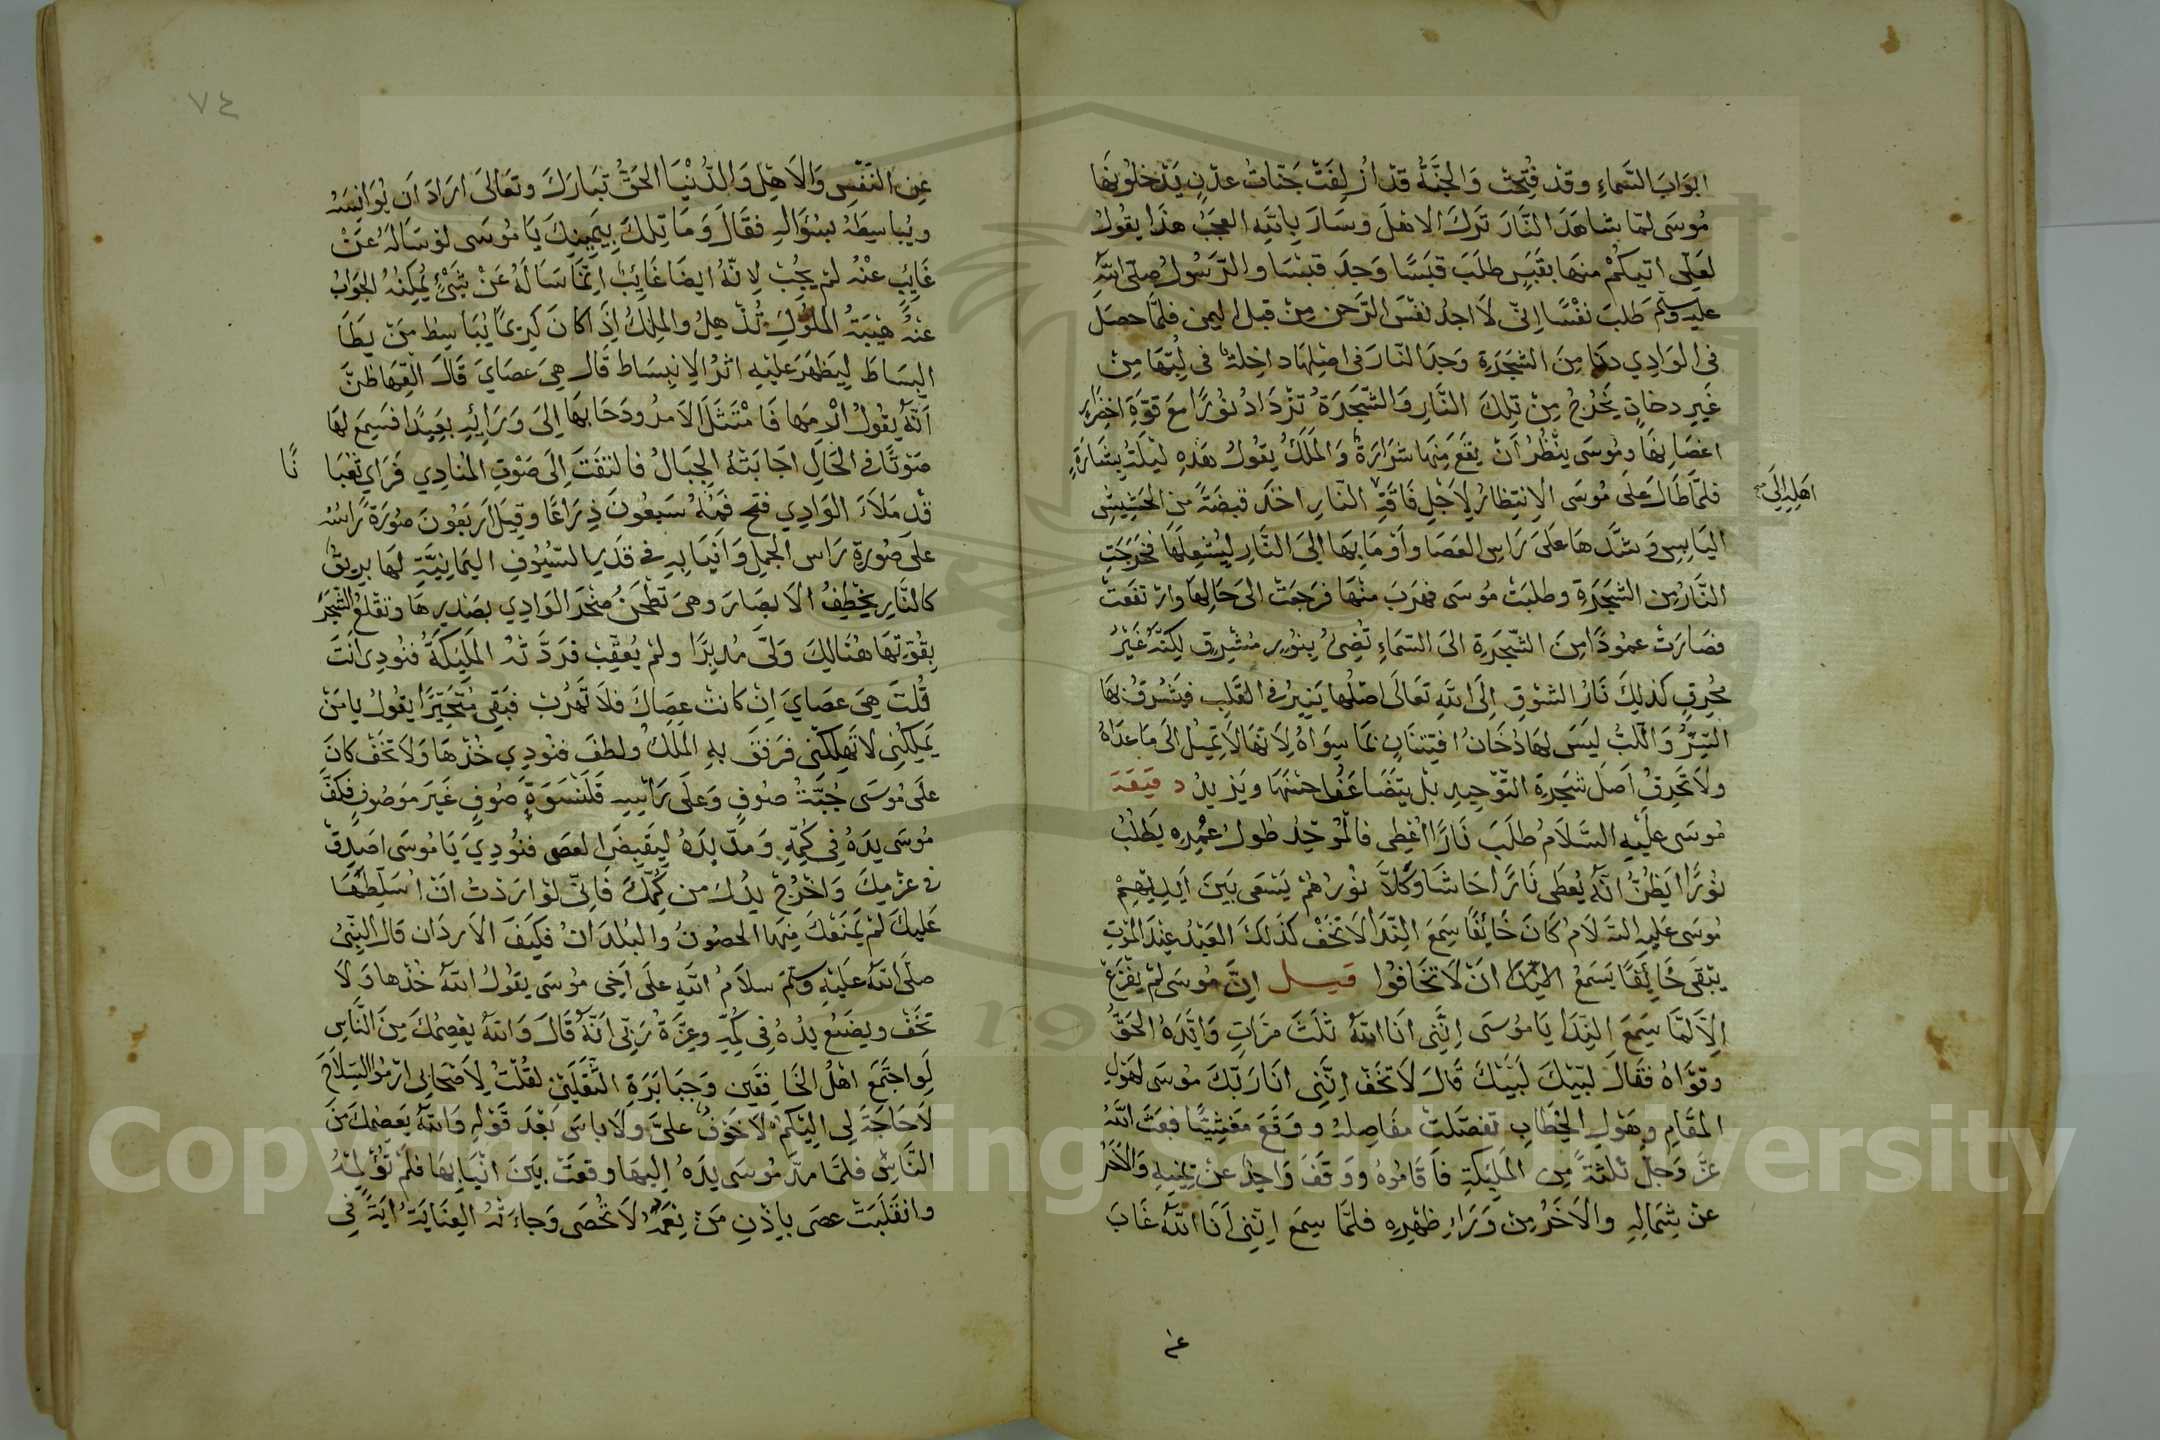 ابواب السماء وقد فتحت والجنة قد ازلفت جنات عدن يدخلونها
موسى لما شاهد النار ترك الاهل وسار ياتيه العجب هذا يقول
لعلي اتيكم منها بقبس طلب قبسا وجد قبسا والرسول صلى الله
عليه وسلم طلب نفسا اني لاجد نفس الرحمن من قبل اليمن فلما حصل
في الوادي دنا من الشجرة وجد النار في اصلها داخلة في لبها من
غير دخان يخرج من تلك النار والشجرة تزداد نورا مع قوة اخضرار
اغصانها وموسى ينظر ان يقع منها شرارة والملك يقول هذه ليلة بشارة
اهله الى
فلما طال على موسى الانتظار لاجل فاقة النار اخذ قبضة من الحشيش
اليابس وشدها على راس العصا واومابها الى النار ليشعلها فخرجت
النار من الشجرة وطلبت موسى فهرب منها فرجعت الى حالها وارتفعت
فصارت عمودا من الشجرة الى السماء تضئ بنور مشرق لكنه غير
محرق كذلك نار الشوق الى الله تعالى اصلها ينير في القلب فيشرق بها
السر واللب ليس لها دخان افتتان بما سواه لانها لا تميل الى ما عداه
ولا تحرق اصل شجرة التوحيد بل يتضاعف حسنها ويزيد دقيقة
موسى عليه السلام طلب نارا اعطى فالموحد طول عمره يطلب
نورا ايظن انه يعطى نارا حاشا وكلا نورهم يسعى بين ايديهم
موسى عليه السلام كان خائفا سمع الندا لا تخف كذلك العبد عند الموت
يبقى خائفا يسمع الندا ان لا تخافوا قيل ان موسى لم يفزع
الا لما سمع الندا يا موسى انني انا الله ثلث مرات وايده الحق
وقواه فقال لبيك لبيك قال لا تخف انني انا ربك موسى لهول
المقام وهول الخطاب تفصلت مفاصله ووقع مغشيا فبعث الله
عز وجل ثلثة من المليكة فاقاموه ووقف واحد عن يمينه والاخر
عن شماله والاخر من وراء ظهره فلما سمع انني انا الله غاب
٧٤
عن النفس والاهل والدنيا الحق تبارك وتعالى اراد ان يوانسه
ويباسطه بسؤاله فقال وما تلك بيمينك يا موسى لو ساله عن
غايب عنه لم يجب لانه ايضا غايب انما ساله عن شئ يمكنه الجواب
عنه هيبة الملوك تذهل والملك اذا كان كريما يباسط من يطا
البساط ليظهر عليه اثر الانبساط قال هي عصاي قال القها ظن
انه يقول ارمها فامتثل الامر ودحا بها الى ورائه بعيدا فسمع لها
صوتا في الحال اجابته الجبال فالتفت الى صوت المنادي فراي ثعبا
نا
قد ملاء الوادي فتح فمه سبعون ذراعا وقيل اربعون صورة راسه
على صورة راس الجمل وانيابه في قدر السيوف اليمانية لها بريق
كالنار يخطف الابصار وهي تطحن صخر الوادي بصدرها وتقلع الشجر
بقوتها هنالك ولى مدبرا ولم يعقب فردته المليكة فنودي انت
قلت هي عصاي ان كانت عصاك فلا تهرب فبقي متحيرا يقول يا من
يملكني لا تهلكني فرفق به الملك ولطف فنودي خذها ولا تخف كان
على موسى جبة صوف وعلى راسه قلنسوة صوف غير موصوف فكف
موسى يده في كمه ومد يده ليقبض العصى فنودي يا موسى اصدق
في عزمك واخرج يدك من كمك فاني لو اردت ان اسلطها
عليك لم يمنعك منها الحصون والبلدان فكيف الاردان قال النبي
صلى الله عليه وسلم سلام الله على اخي موسى يقول الله خذها ولا
تخف ويضع يده في كمه وعزة ربي انه قال والله يعصمك من الناس
لو اجتمع اهل الخافقين وجبابرة الثقلين لقلت لاصحابي ارموا السلاح
لا حاجة لي اليكم لا خوف علي ولا باس بعد قوله والله يعصمك من
الناس فلما مد موسى يده اليها وقعت بين انيابها فلم تؤلمه
وانقلبت عصى باذن من نعمه لا تحصى وجاءته العناية اية في
Copyright © King Saud University